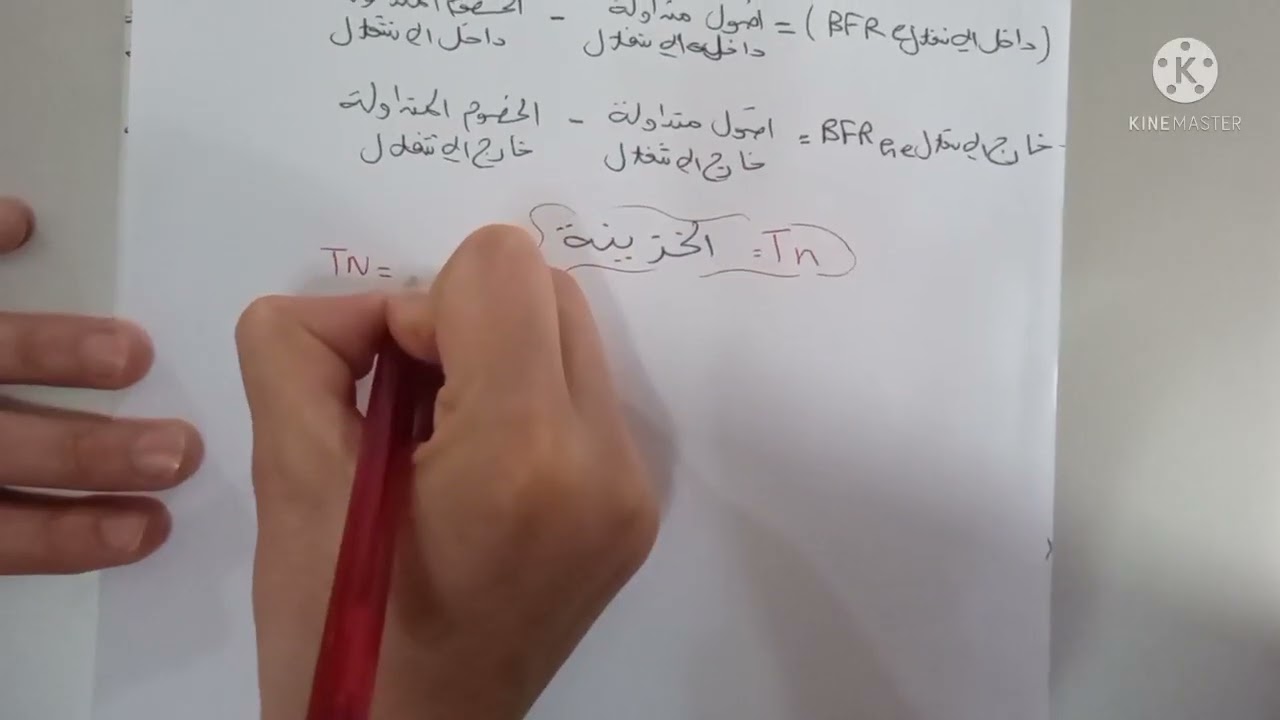 (داخل الاستغلال BFRe) = اصول متداولة - الخصوم المتداولة
داخل الاستغلال داخل الاستغلال
خارج الاستغلال BFRhe = اصول متداولة - الخصوم المتداولة
خارج الاستغلال خارج الاستغلال
Tn = الخزينة
TN =
KINEMASTER